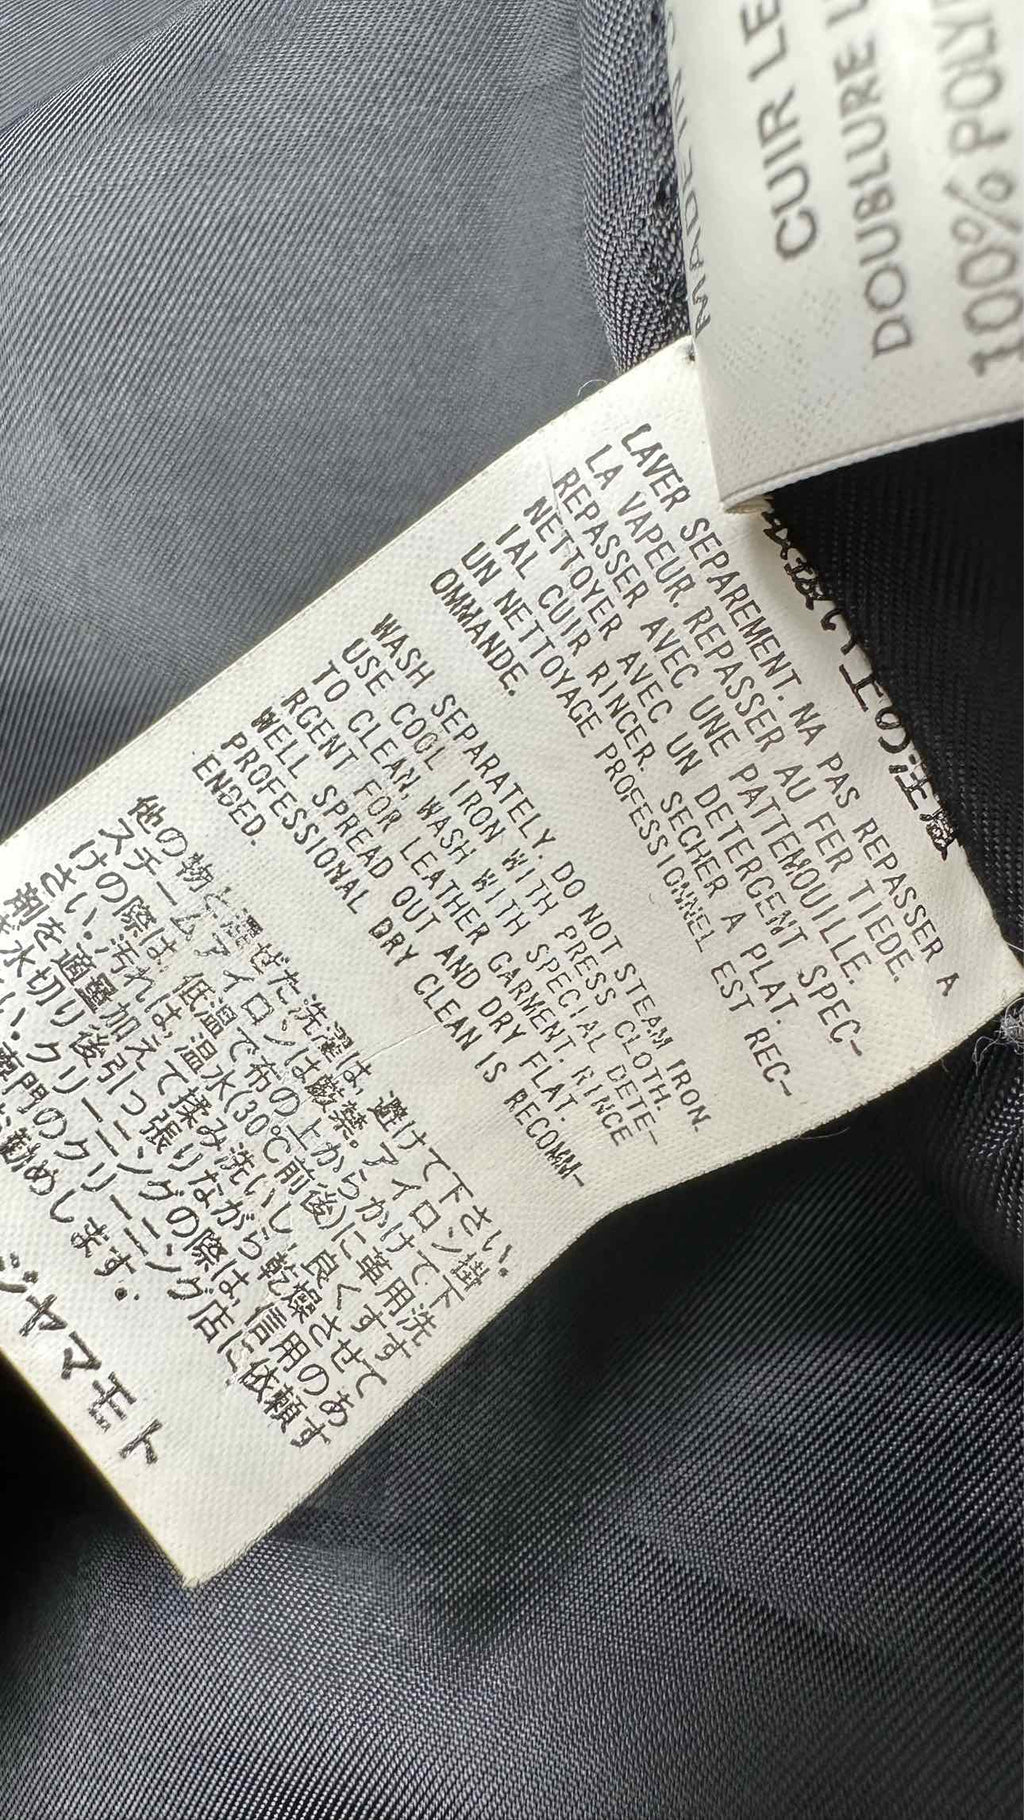 MADE IN
CUIR LE
DOUBLURE L
100% POLY
取扱い上の注意
LAVER SEPAREMENT. NA PAS REPASSER A
LA VAPEUR. REPASSER AU FER TIEDE.
REPASSER AVEC UNE PATTEMOUILLE.
NETTOYER AVEC UN DETERGENT SPEC-
IAL CUIR RINCER. SECHER A PLAT.
UN NETTOYAGE PROFESSIONNEL EST REC-
OMMANDE.
WASH SEPARATELY. DO NOT STEAM IRON.
USE COOL IRON WITH PRESS CLOTH.
TO CLEAN, WASH WITH SPECIAL DETE-
RGENT FOR LEATHER GARMENT. RINCE
WELL SPREAD OUT AND DRY FLAT.
PROFESSIONAL DRY CLEAN IS RECOMM-
ENDED.
他の物と混ぜた洗濯は、避けて下さい。
スチームアイロンは厳禁。アイロン掛
けの際は、低温で布の上からかけて下
さい。汚れは、温水(30℃前後)に革用洗
剤を適量加えて揉み洗いし、良くすす
水切り後引っ張りながら乾燥させて
い。クリーニングの際は、信用のあ
専門のクリーニング店に依頼す
お勧めします。
ジヤマモト